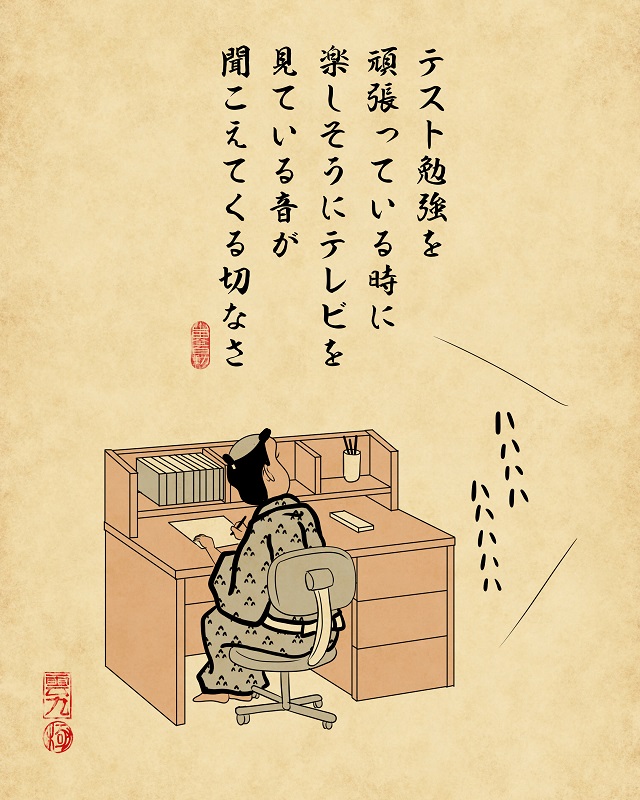 テスト勉強を
頑張っている時に
楽しそうにテレビを
見ている音が
聞こえてくる切なさ
ハハハハ
ハハハハハ